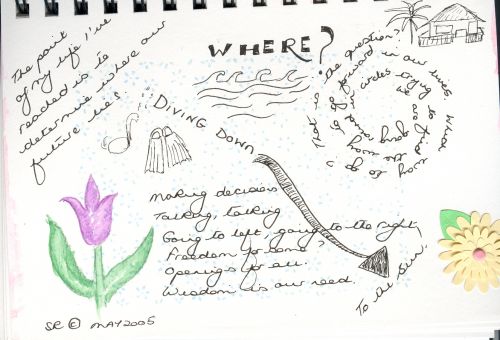 The point
of my life I've
reached is to
determine where our
future lies.
WHERE?
That is the question? When
to go forward in our lives.
we find
we are
in circles trying to
going round
the wrong
way to go
DIVING DOWN
Making decisions
Talking, talking
Going to left, going to the right,
Freedom for some?
Openings for all.
Wisdom is our need.
To the Sun.
SR © MAY 2005